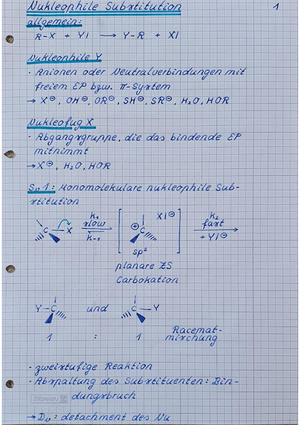 Nukleophile Substitution 1
allgemein:
R-X + YI → Y-R + XI
Nukleophile Y
· Anionen oder Neutralverbindungen mit
freiem EP bzw. π-System
→ X⊖, OH⊖, OR⊖, SH⊖, SR⊖, H₂O, HOR
Nukleofug X
· Abgangsgruppe, die das bindende EP
mitnimmt
→ X⊖, H₂O, HOR
SN1: Monomolekulare nukleophile Sub-
stitution
C X k₁ slow k₋₁ ⊕ C XI⊖ k₂ fast + YI⊖
sp²
planare ZS
Carbokation
Y-C und C-Y
1 : 1 Racemat-
mischung
· zweistufige Reaktion
· Abspaltung des Substituenten: Bin-
dungsbruch
→ DN: detachment des Nu